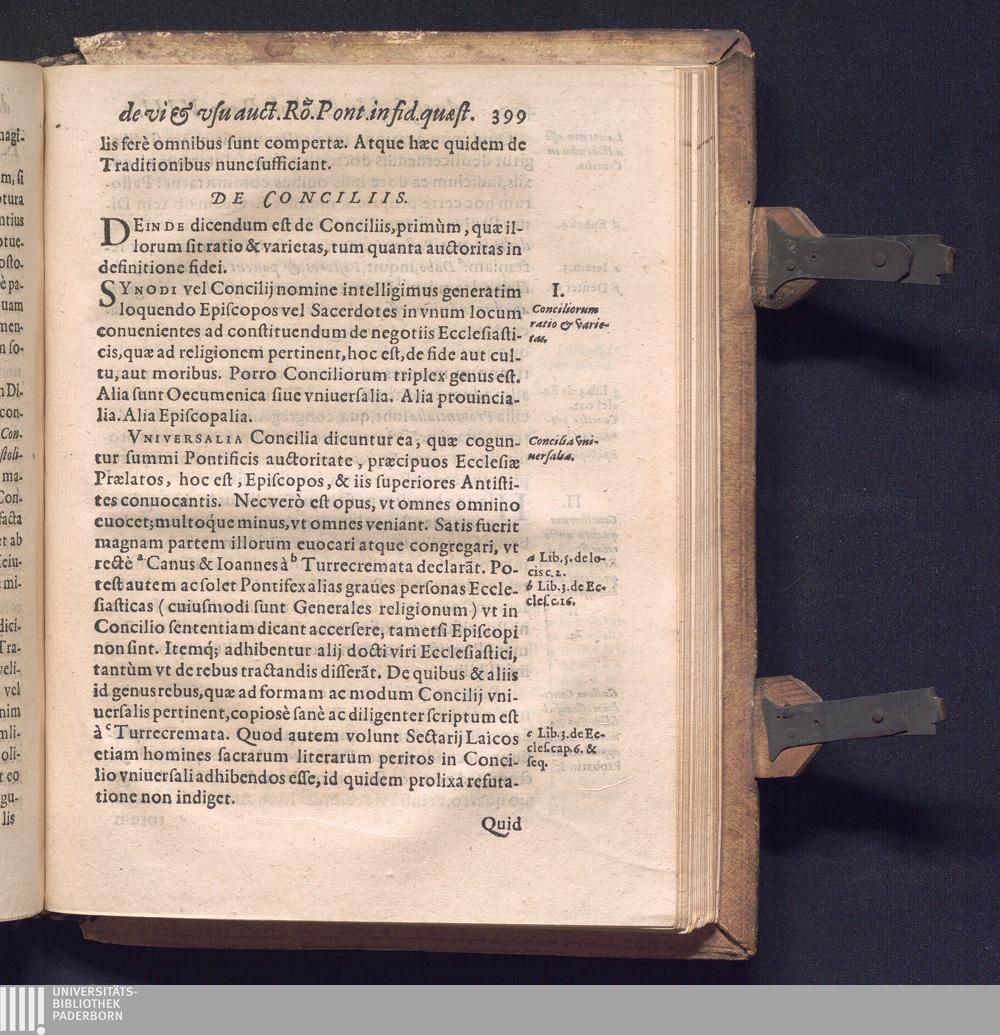 de vi & vsu auct. Rõ. Pont. in fid. quæst. 399
lis ferè omnibus sunt compertæ. Atque hæc quidem de
Traditionibus nunc sufficiant.
DE CONCILIIS.
DEINDE dicendum est de Conciliis, primùm, quæ il-
lorum sit ratio & varietas, tum quanta auctoritas in
definitione fidei.
SYNODI vel Concilij nomine intelligimus generatim
loquendo Episcopos vel Sacerdotes in vnum locum
conuenientes ad constituendum de negotiis Ecclesiasti-
cis, quæ ad religionem pertinent, hoc est, de fide aut cul-
tu, aut moribus. Porro Conciliorum triplex genus est.
Alia sunt Oecumenica siue vniuersalia. Alia prouincia-
lia. Alia Episcopalia.
I.
Conciliorum
ratio & varie-
tas.
VNIVERSALIA Concilia dicuntur ea, quæ cogun-
tur summi Pontificis auctoritate, præcipuos Ecclesiæ
Prælatos, hoc est, Episcopos, & iis superiores Antisti-
tes conuocantis. Nec verò est opus, vt omnes omnino
euocet; multoq́ue minus, vt omnes veniant. Satis fuerit
magnam partem illorum euocari atque congregari, vt
rectè a Canus & Ioannes à b Turrecremata declarãt. Po-
test autem ac solet Pontifex alias graues personas Eccle-
siasticas (cuiusmodi sunt Generales religionum) vt in
Concilio sententiam dicant accersere, tametsi Episcopi
non sint. Itemq́; adhibentur alij docti viri Ecclesiastici,
tantùm vt de rebus tractandis disserãt. De quibus & aliis
id genus rebus, quæ ad formam ac modum Concilij vni-
uersalis pertinent, copiosè sanè ac diligenter scriptum est
à c Turrecremata. Quod autem volunt Sectarij Laicos
etiam homines sacrarum literarum peritos in Conci-
lio vniuersali adhibendos esse, id quidem prolixa refuta-
tione non indiget.
Concilia vni-
uersalia.
a Lib. 5. de lo-
cis c. 2.
b Lib. 3. de Ec-
cles. c. 16.
c Lib. 3. de Ec-
cles. cap. 6. &
seq.
Quid
UNIVERSITÄTS-
BIBLIOTHEK
PADERBORN